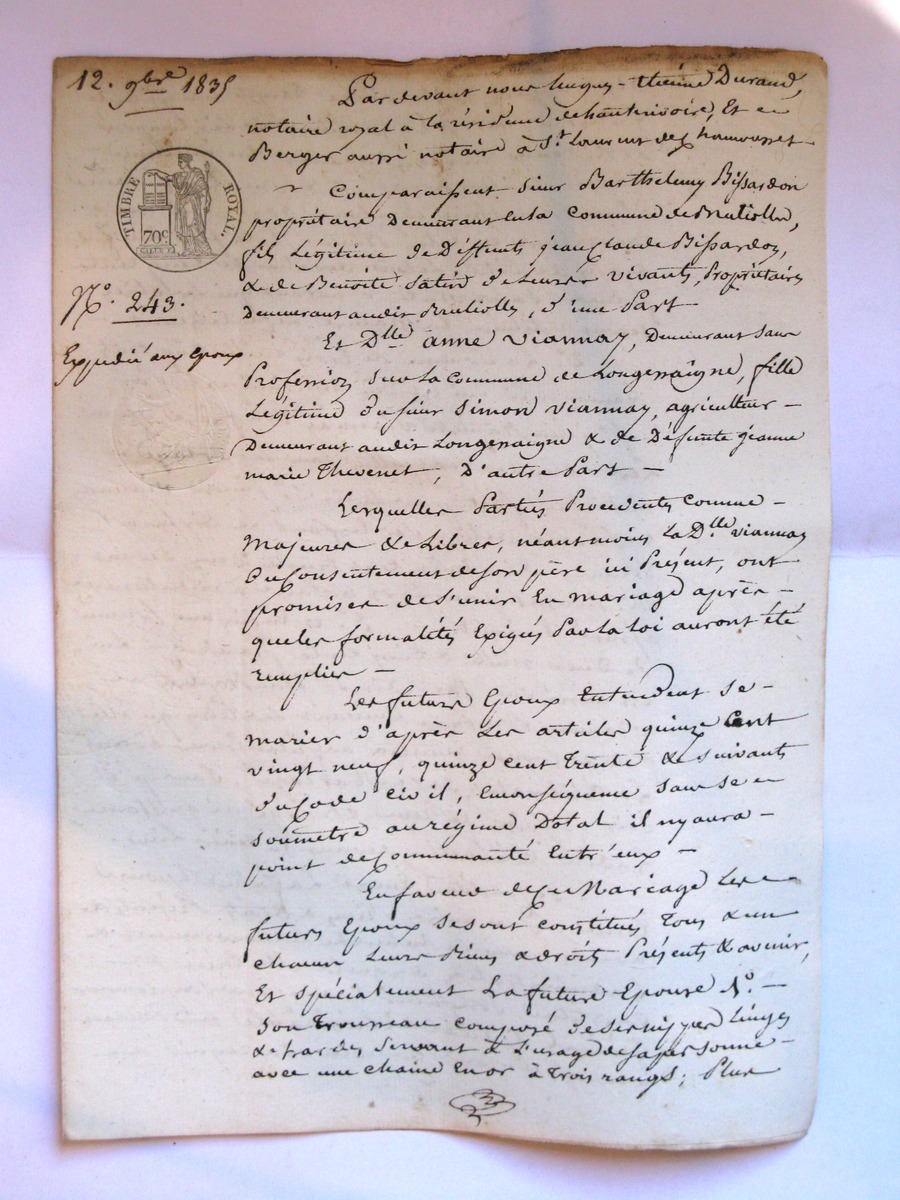 12. 9bre 1835
Pardevant nous hugues-étienne Durand,
notaire royal à la résidence de hauterivoire, Et
Berger aussi notaire à St Laurent de Chamousset
TIMBRE ROYAL.
70c
Comparaissent Sieur Barthelemy Bissardon
propriétaire Demeurant en la Commune de Brullolles,
fils Légitime de Deffunts jean Claude Bissardon,
& de Benoite Satin de Leurs vivants, Propriétaires
Demeurant audit Brullolles, d'une Part
No. 243.
Et Dlle anne viannay, Demeurant sans
Expédié aux époux
Profession sur La Commune de Longessaigne, fille
Légitime du sieur Simon viannay, agriculteur -
Demeurant audit Longessaigne & de Défunte jeanne
marie Thevenet, D'autre Part -
Lesquelles Parties Procedents Comme -
Majeures & Libres, néantmoins La Dlle viannay
du Consentement de son père ici Présent, ont
promises de s'unir En mariage après -
que les formalités Exigés Par la loi auront été
remplies -
Les futurs Epoux Entendent se -
marier d'après Les articles quinze Cent
vingt neuf, quinze cent Trente & suivants
du Code civil, En conséquence sans se
soumetre au régime Dotal il ny aura -
point de Communauté Entr'eux -
En faveur de Ce Mariage Les
futurs Epoux se sont constitués Tous &un
chacun Leurs Biens & droits Présents & avenir,
Et spécialement La future Epouse 1o. -
son Trousseau composé de ses nippes Linges
& hardes Servant à L'usage de sa personne -
avec une chaine En or à Trois rangs; Plus